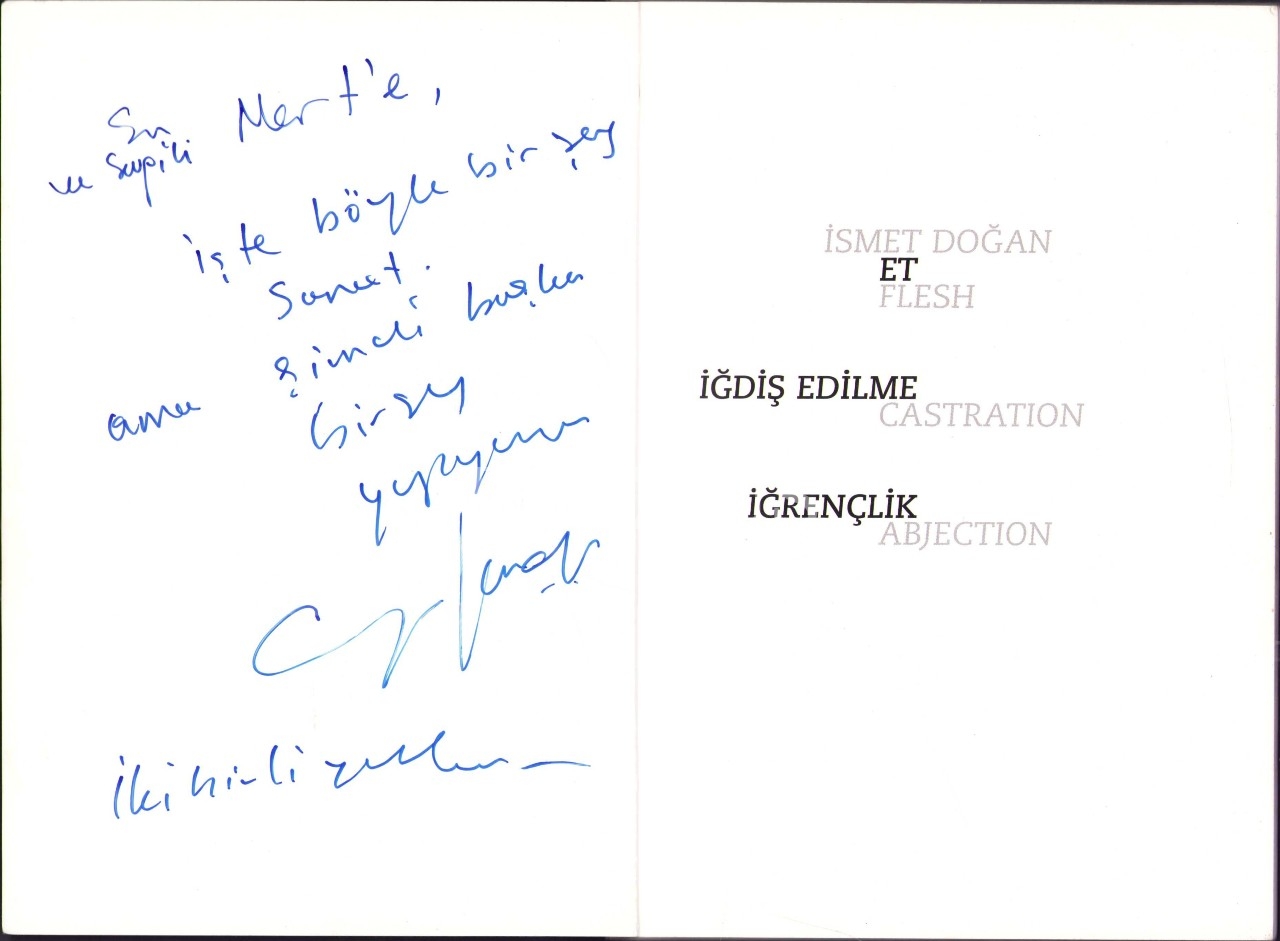 Sn Mert'e,
ve Sevgili
işte böyle bir şey
Sanat.
ama şimdi başka
birşey
yapıyorum
İki binli yıllar
İSMET DOĞAN
ET
FLESH
İĞDİŞ EDİLME
CASTRATION
İĞRENÇLİK
ABJECTION